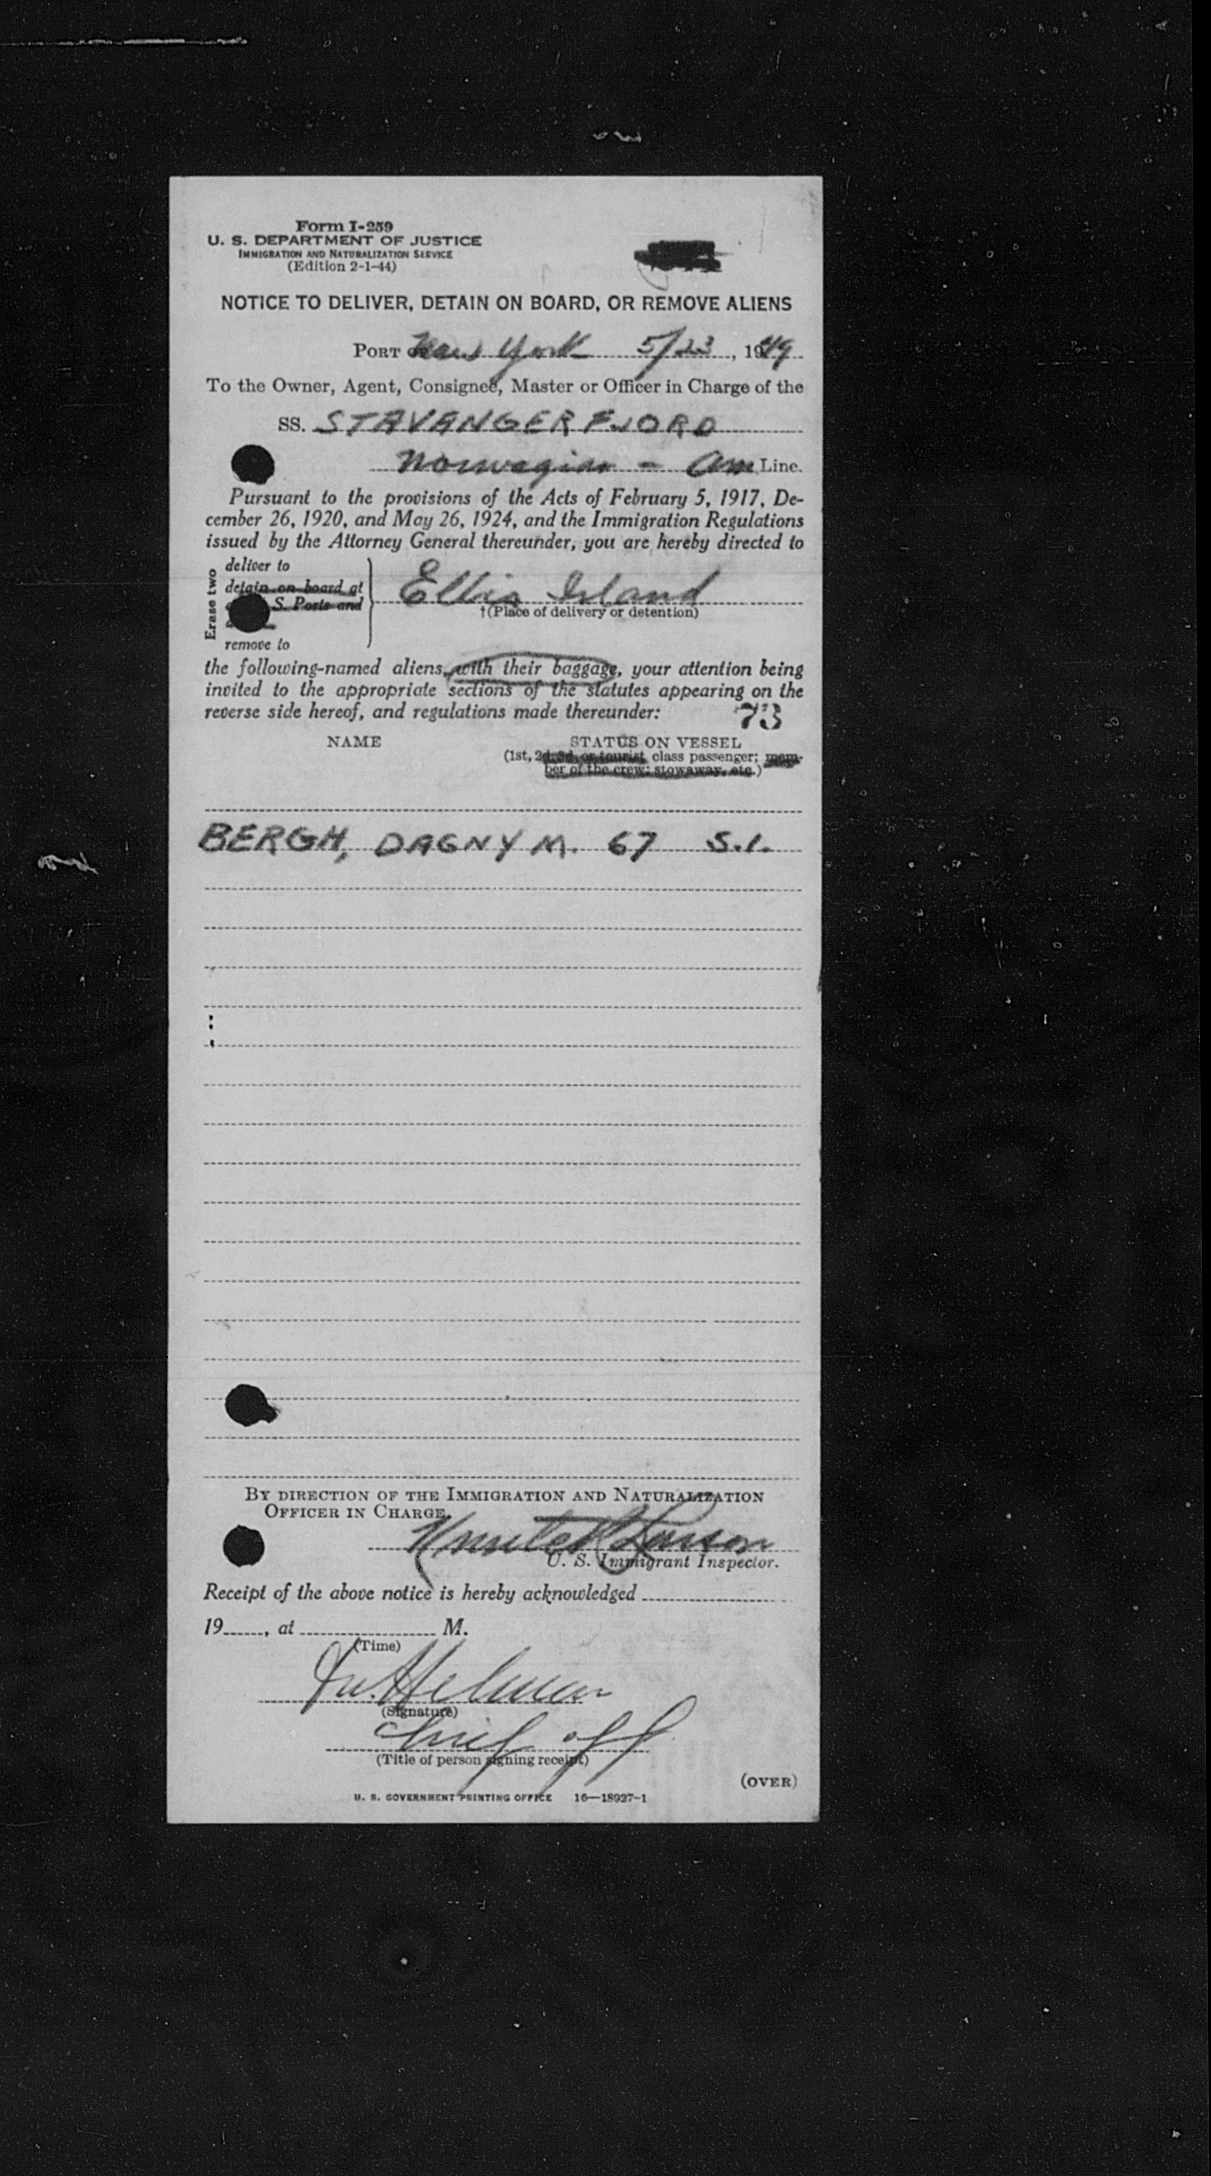 Form I-259
U. S. DEPARTMENT OF JUSTICE
IMMIGRATION AND NATURALIZATION SERVICE
(Edition 2-1-44)
NOTICE TO DELIVER, DETAIN ON BOARD, OR REMOVE ALIENS
PORT OF New York 5/23, 1949
To the Owner, Agent, Consignee, Master or Officer in Charge of the
SS. STAVANGERFJORD
Norwegian - Am Line.
Pursuant to the provisions of the Acts of February 5, 1917, De-
cember 26, 1920, and May 26, 1924, and the Immigration Regulations
issued by the Attorney General thereunder, you are hereby directed to
Erase two
deliver to
detain on board at
S. Ports and
remove to
Ellis Island
†(Place of delivery or detention)
the following-named aliens, with their baggage, your attention being
invited to the appropriate sections of the statutes appearing on the
reverse side hereof, and regulations made thereunder:
73
NAME STATUS ON VESSEL
(1st, 2d, 3d, or tourist class passenger; mem-
ber of the crew; stowaway, etc.)
BERGH, DAGNY M. 67 S.I.
BY DIRECTION OF THE IMMIGRATION AND NATURALIZATION
OFFICER IN CHARGE,
Larson
U. S. Immigrant Inspector.
Receipt of the above notice is hereby acknowledged
19, at M.
(Time)
(Signature)
Chief off
(Title of person signing receipt)
(OVER)
U. S. GOVERNMENT PRINTING OFFICE 16—18927-1